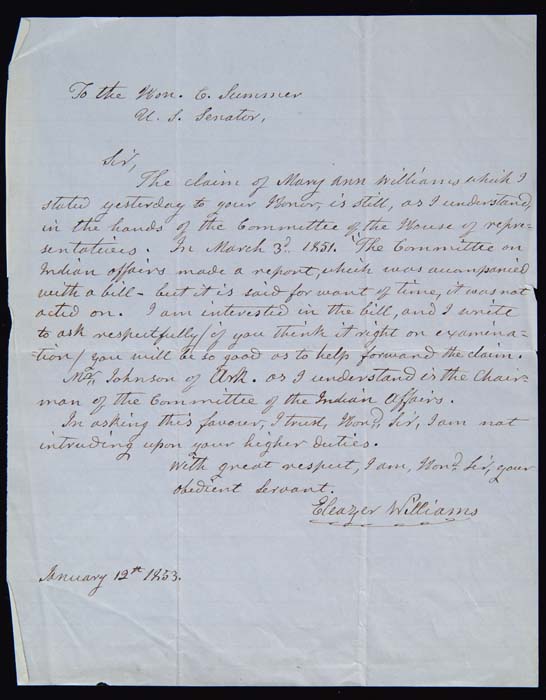 To the Hon. C. Sumner
U. S. Senator,
Sir,
The claim of Mary Ann Williams which I
stated yesterday to your Honor, is still, as I understand,
in the hands of the Committee of the House of repre-
sentatives. In March 3d. 1851. The Committee on
Indian affairs made a report, which was accompanied
with a bill - but it is said for want of time, it was not
acted on. I am interested in the bill, and I write
to ask respectfully / if you think it right on examina-
tion / you will be so good as to help forward the claim.
Mr. Johnson of Ark. as I understand is the Chair-
man of the Committee of the Indian Affairs.
In asking this favour, I trust, Hond. Sir, I am not
intruding upon your higher duties.
With great respect, I am, Hond. Sir, your
obedient servant.
Eleazer Williams
January 12th 1853.